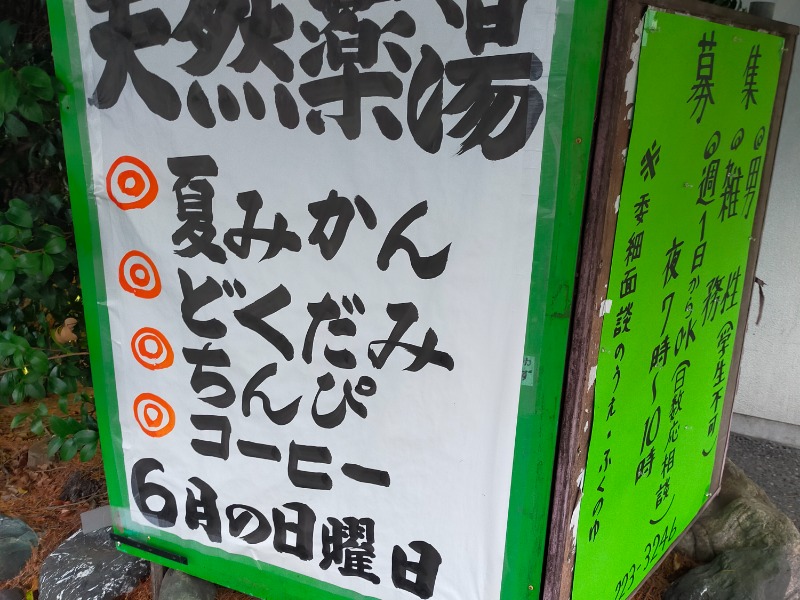 天然薬湯
◎ 夏みかん
◎ どくだみ
◎ ちんぴ
◎ コーヒー
6月の日曜日
募集
◎男性(学生不可)
◎雑務
◎週1日からOK(日数応相談)
夜7時〜10時
※委細面談のうえ・ふくのゆ
223-3246